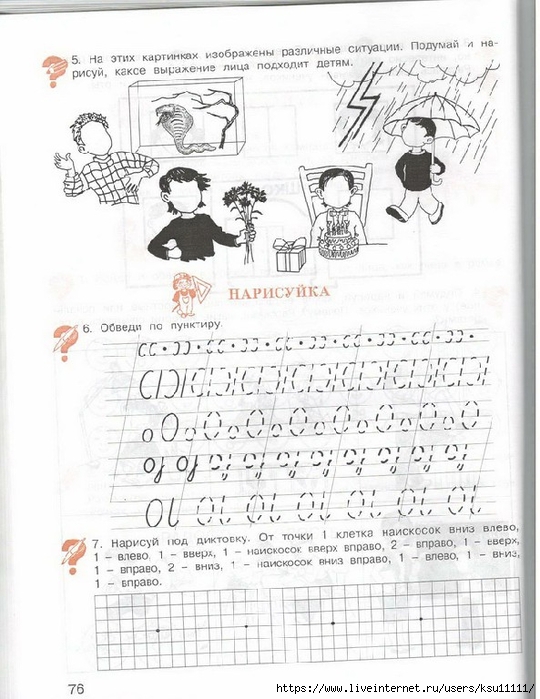 5. На этих картинках изображены различные ситуации. Подумай и на-
рисуй, какое выражение лица подходит детям.
НАРИСУЙКА
6. Обведи по пунктиру.
7. Нарисуй под диктовку. От точки 1 клетка наискосок вниз влево,
1 – влево, 1 – вверх, 1 – наискосок вверх вправо, 2 – вправо, 1 – вверх,
1 – вправо, 2 – вниз, 1 – наискосок вниз вправо, 1 – влево, 1 – вниз,
1 – вправо.
76
https://www.liveinternet.ru/users/ksu11111/